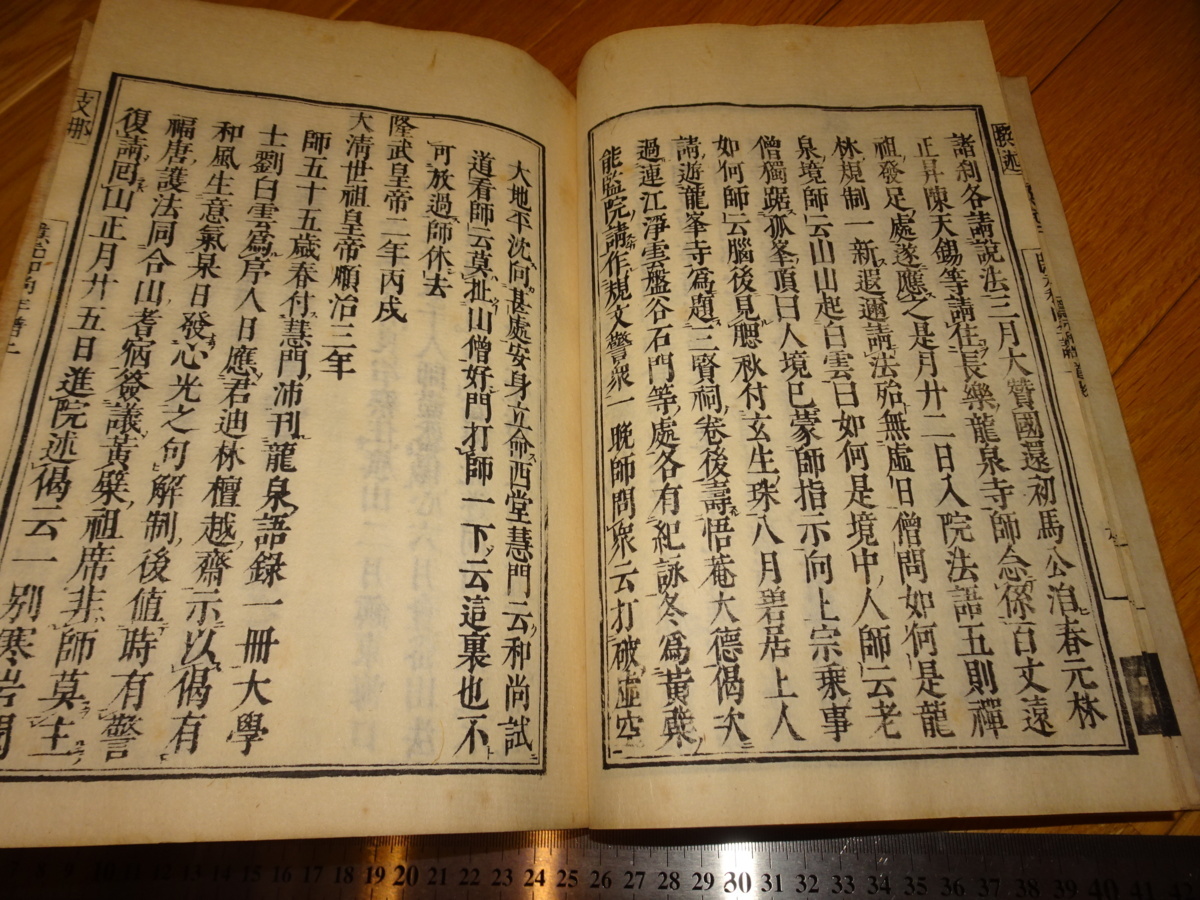 諸刹各請說法三月大贊國還初馬公泊春元林
正昇陳天錫等請住長樂龍泉寺師念係百丈遠
祖發足處遂應之是月廿二日入院法語五則禪
林規制一新遐邇請法殆無虛日僧問如何是龍
泉境師云山山起白雲曰如何是境中人師云老
僧獨踞孤峯頂曰人境已蒙師指示向上宗乗事
如何師云腦後見腮秋付玄生珠八月碧居上人
請遊龍峯寺爲題三賢祠卷後壽悟菴大德偈次
過連江淨雲盤谷石門等處各有紀詠冬爲黄檗
能監院請作規文警衆一晚師問衆云打破虛空
大地平沈向甚處安身立命西堂慧門云和尚試
道看師云莫扯山僧好門打師一下云這裏也不
可放過師休去
隆武皇帝二年丙戌
大清世祖皇帝順治三年
師五十五歳春付慧門沛刊龍泉語録一冊大學
士劉白雲爲序人日應君迪林檀越齋示以偈有
和風生意氣泉日發心光之句解制後値時有警
福唐護法同合山耆宿僉議黃檗祖席非師莫主
復請囘山正月廿五日進院述偈云一別寒岩間
支那
撰述